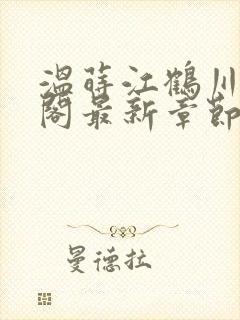 温莳江鹤川
阁最新章節
曼德拉